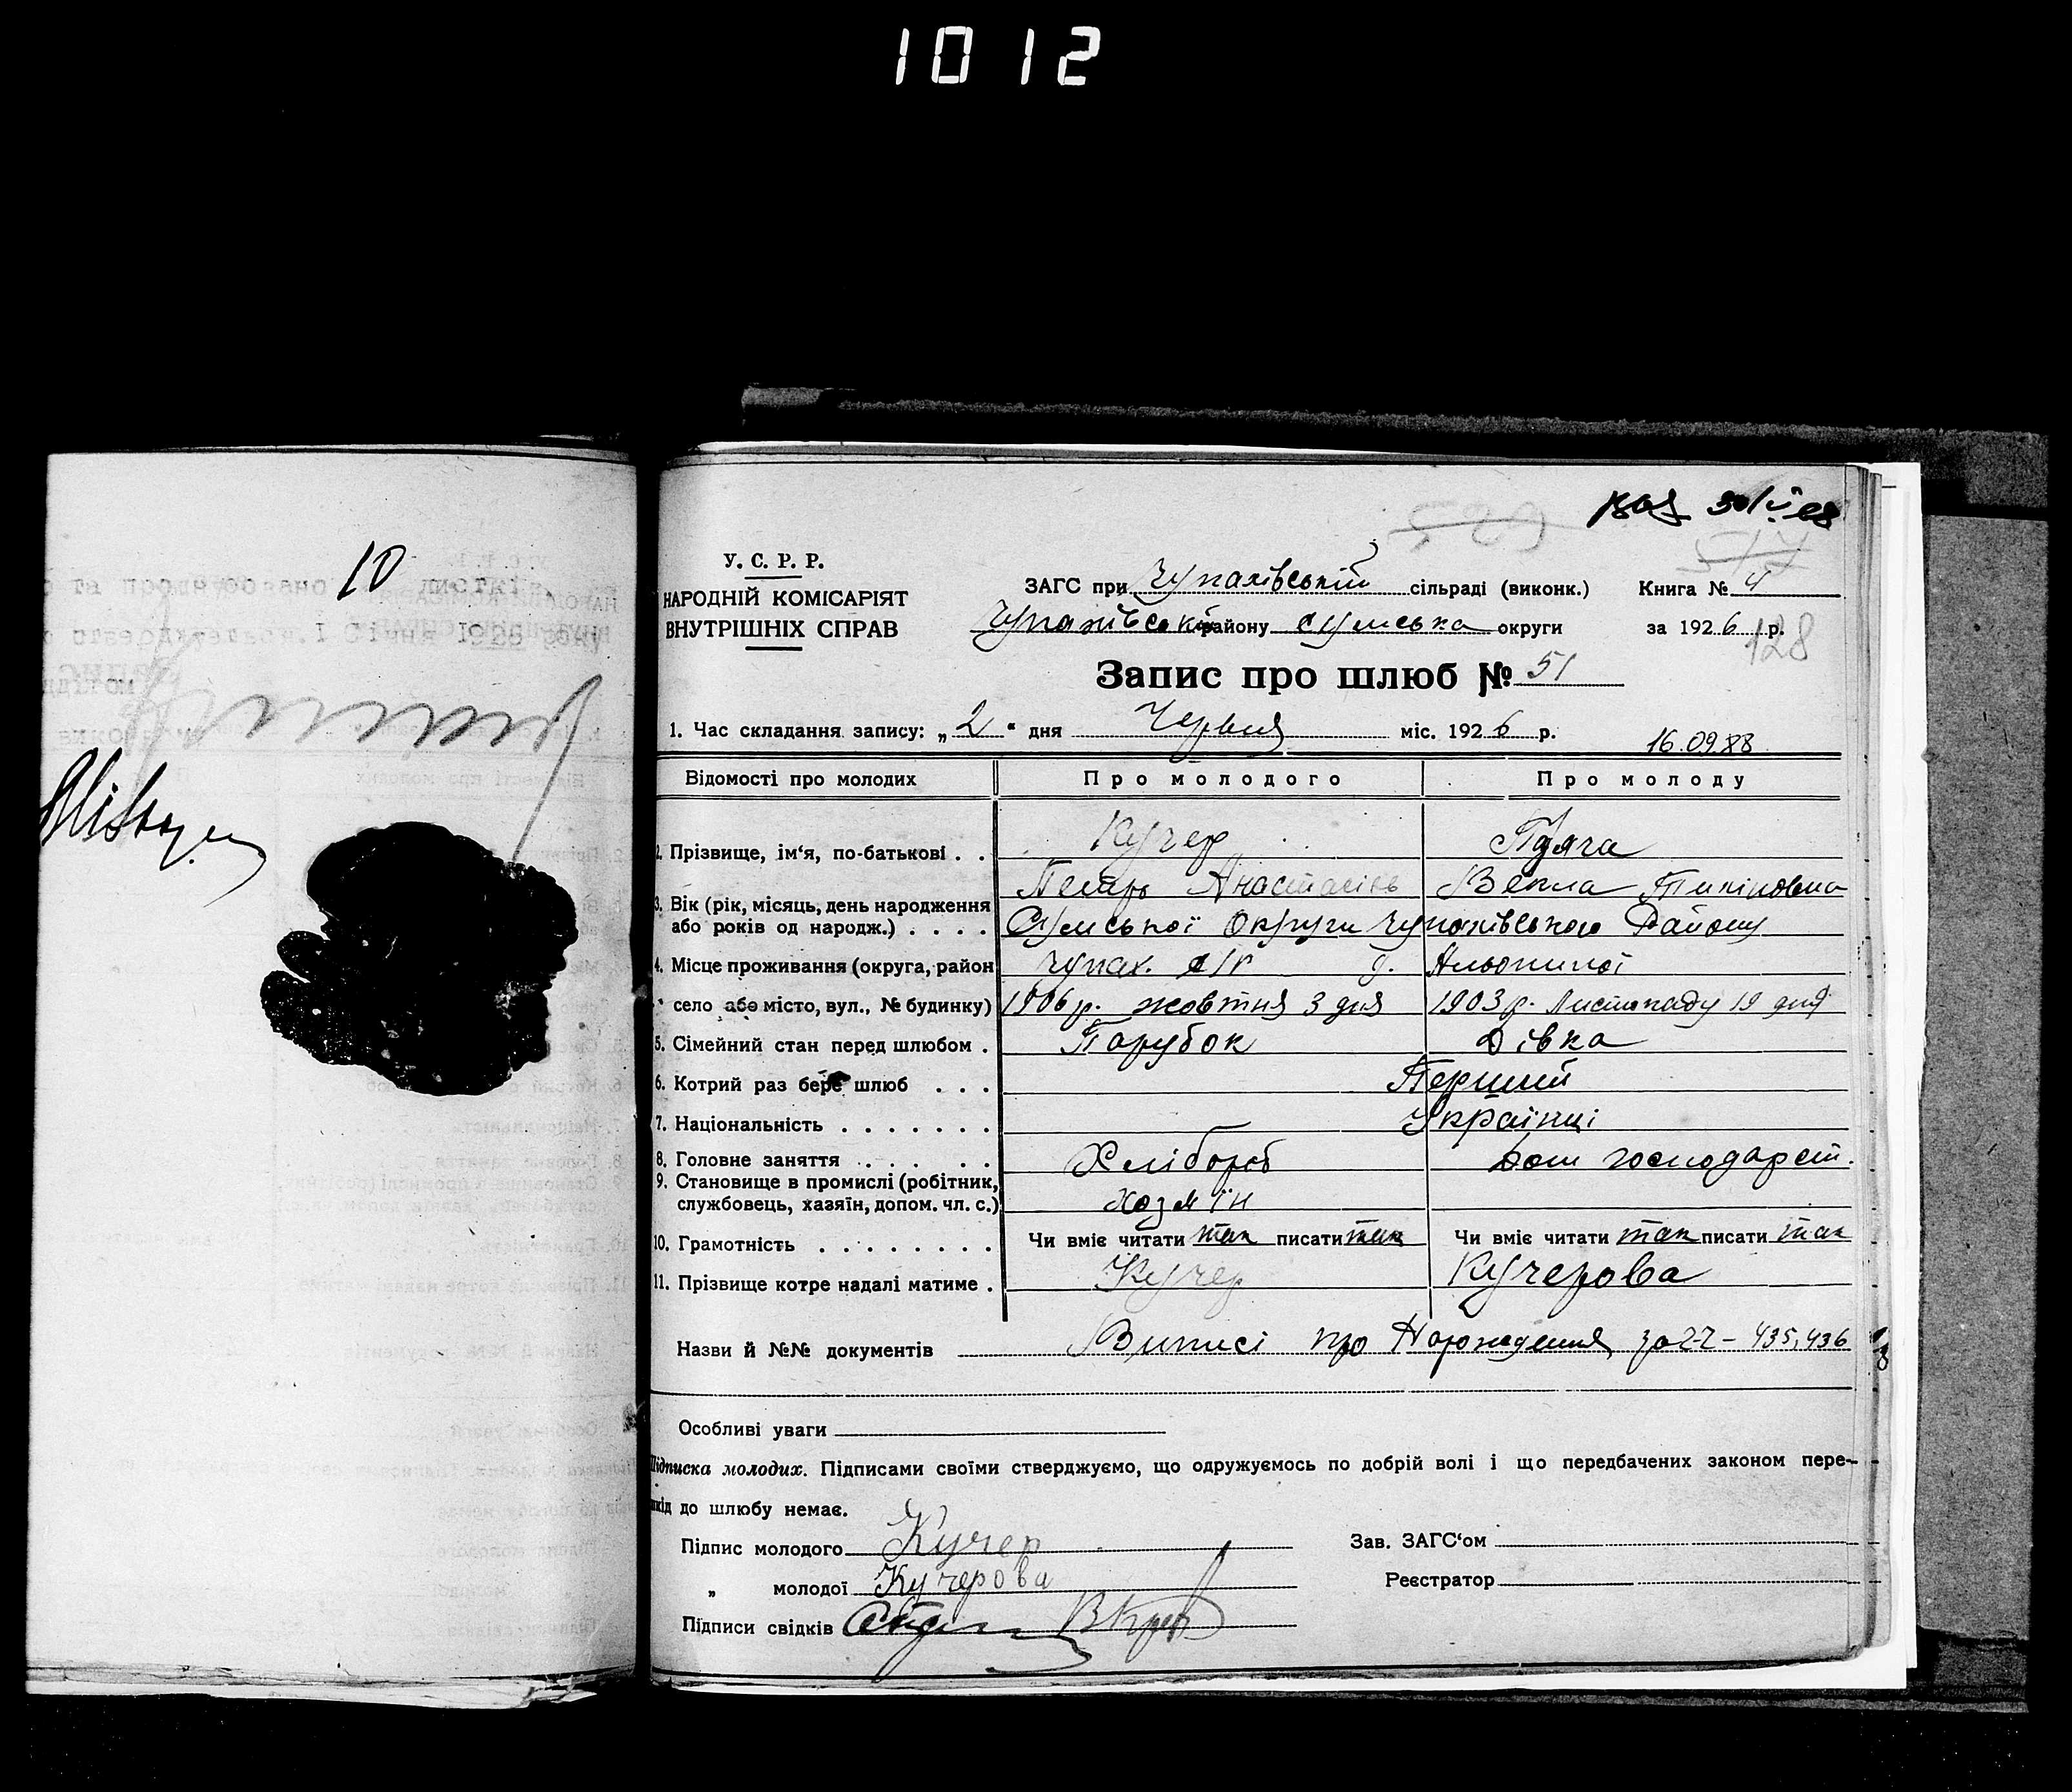 1012
10
У. С. Р. Р.
НАРОДНІЙ КОМІСАРІЯТ
ВНУТРІШНІХ СПРАВ
ЗАГС при Чупахівській сільраді (виконк.) Книга № 4
Чупахівськ району Сумська округи за 1926 р.
128
Запис про шлюб № 51
1. Час складання запису: „2“ дня Червня міс. 1926 р.
16.09.88
Відомості про молодих Про молодого Про молоду
2. Прізвище, ім‘я, по-батькові . . Кучер
Петро Векла
3. Вік (рік, місяць, день народження
або років од народж.) . . . . Сумської Округи Чупахівського Району
4. Місце проживання (округа, район Чупах.
село або місто, вул., № будинку) 1906 р. жовтня 3 дня 1903 р. Листопаду 19 дня
5. Сімейний стан перед шлюбом . Парубок Дівка
6. Котрий раз бере шлюб . . . Перший
7. Національність . . . . . . . Українці
8. Головне заняття . . . . . Хлібороб Дом господарст.
9. Становище в промислі (робітник,
службовець, хазяїн, допом. чл. с.) Хозяїн
10. Грамотність . . . . . . . . Чи вміє читати так писати так Чи вміє читати так писати так
11. Прізвище котре надалі матиме . Кучер Кучерова
Назви й №№ документів Виписі про Народження за 22 – 435, 436
Особливі уваги
Підписка молодих. Підписами своїми стверджуємо, що одружуємось по добрій волі і що передбачених законом пере-
шкід до шлюбу немає.
Підпис молодого Кучер Зав. ЗАГС‘ом
„ молодої Кучерова Реєстратор
Підписи свідків